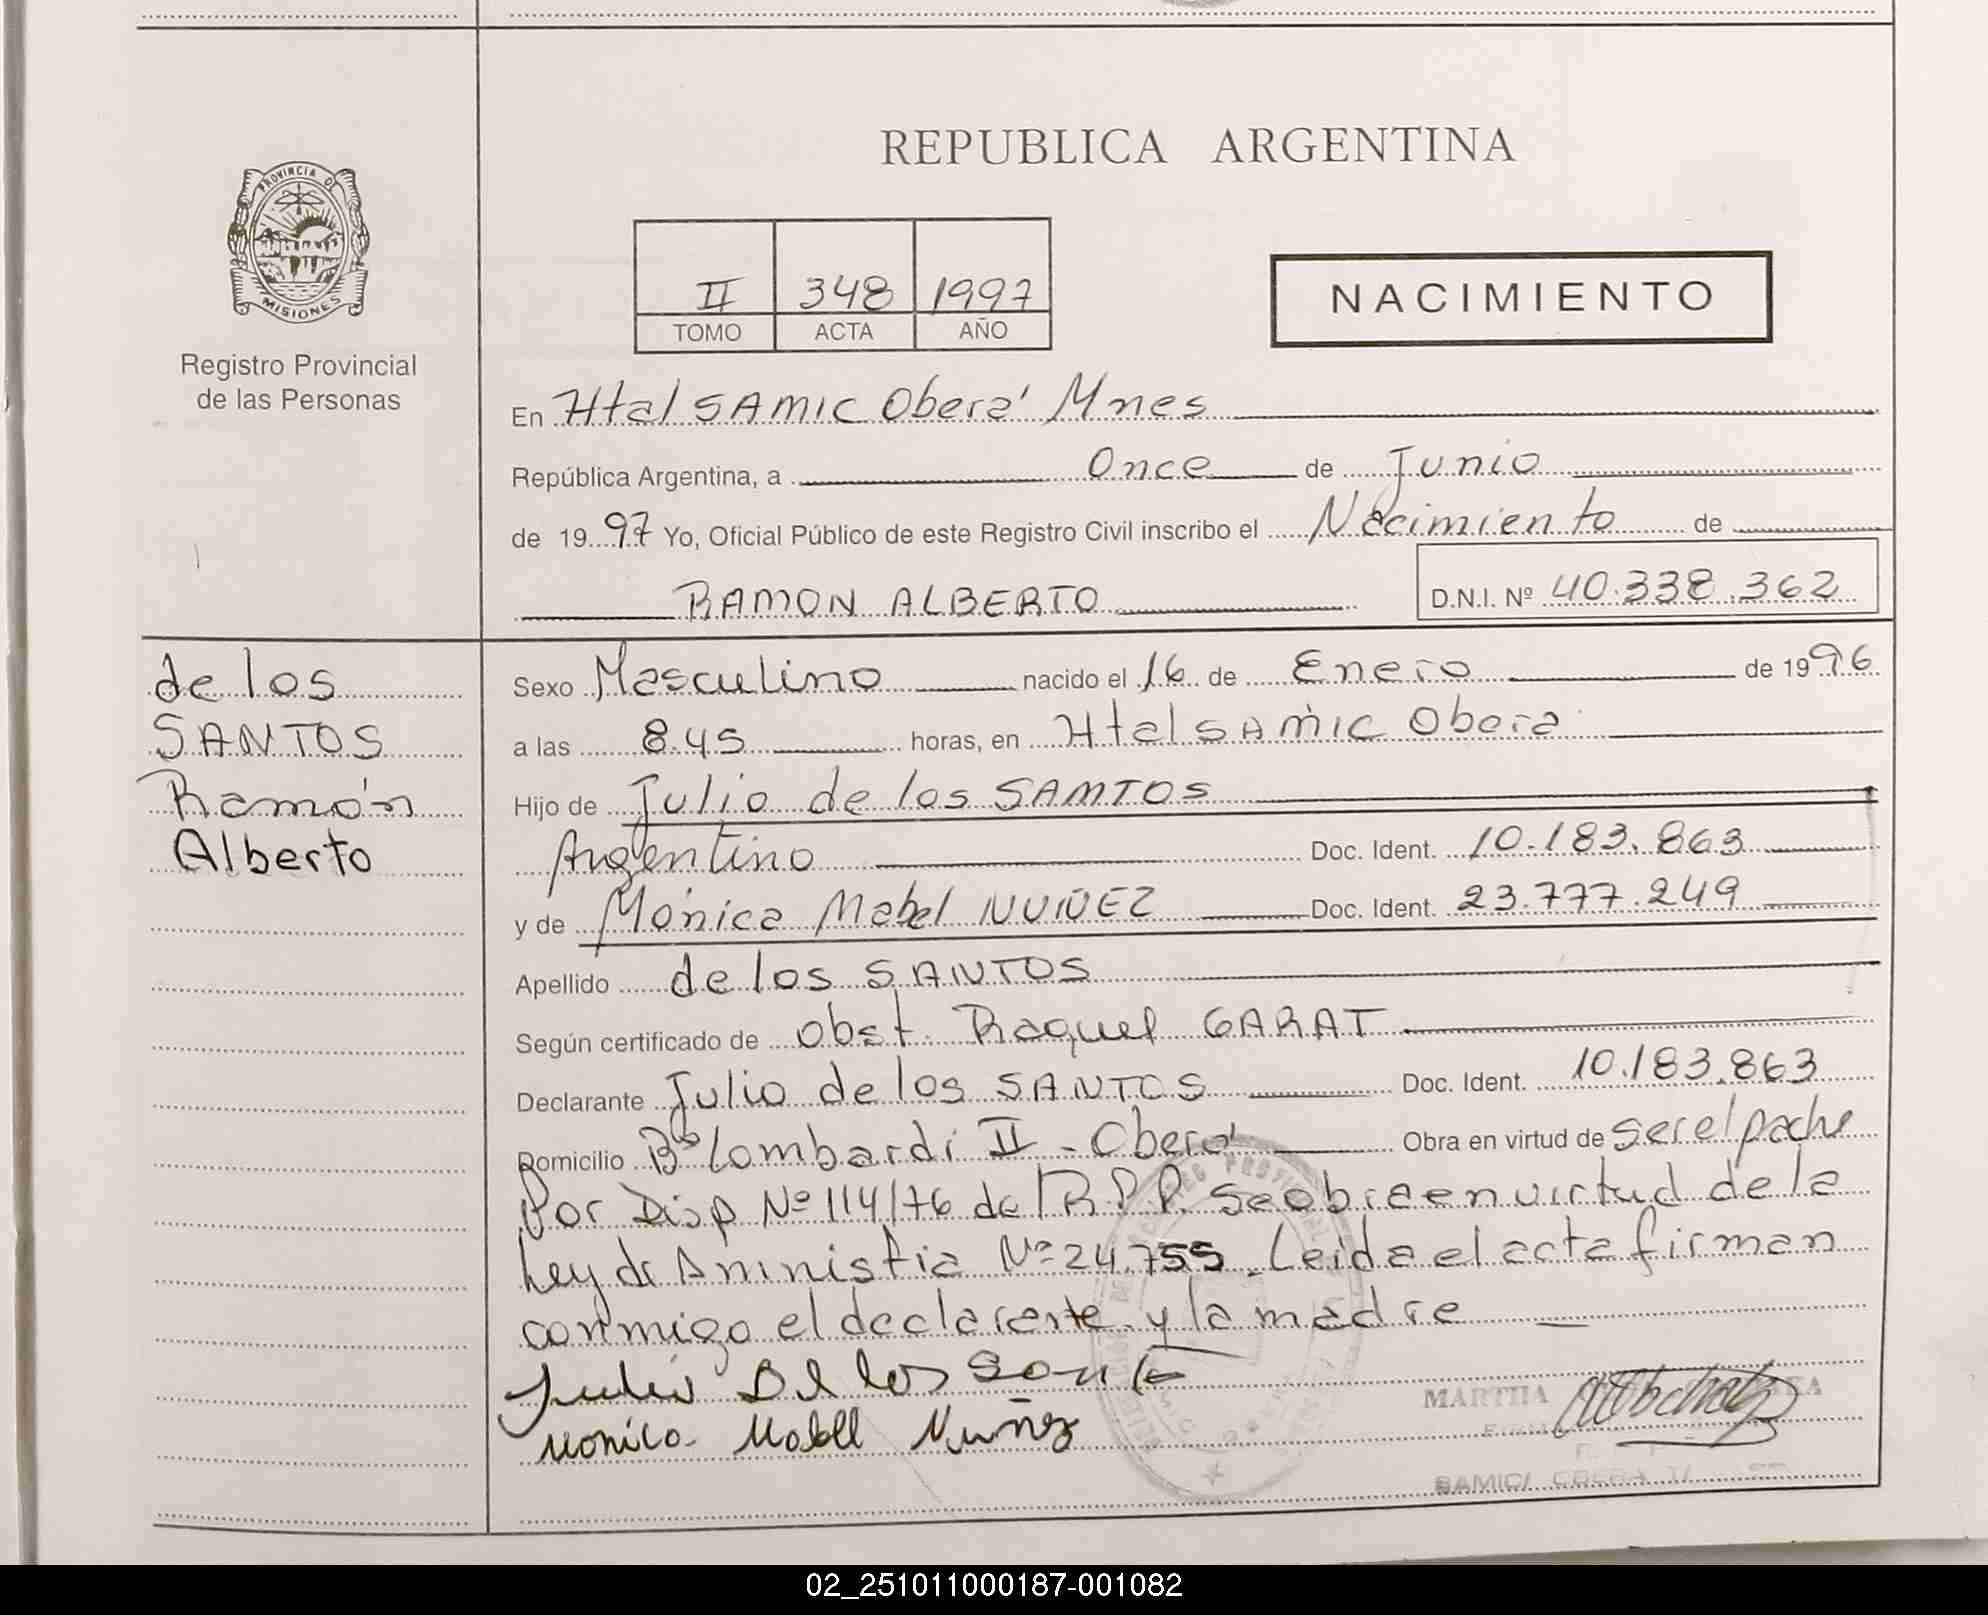 REPUBLICA ARGENTINA
PROVINCIA DE
MISIONES
Registro Provincial
de las Personas
II 348 1997
TOMO ACTA AÑO
NACIMIENTO
En Htal SAMIC Oberá Mnes
República Argentina, a Once de Junio
de 1997 Yo, Oficial Público de este Registro Civil inscribo el Nacimiento de
RAMON ALBERTO D.N.I. Nº 40.338.362
de los
SANTOS
Ramón
Alberto
Sexo Masculino nacido el 16 de Enero de 1996
a las 8.45 horas, en Htal SAMIC Obera
Hijo de Julio de los SAMTOS
Argentino Doc. Ident. 10.183.863
y de Mónica Mabel NUÑEZ Doc. Ident. 23.777.249
Apellido de los SANTOS
Según certificado de Obst. Raquel GARAT
Declarante Julio de los SANTOS Doc. Ident. 10.183.863
Domicilio Bº Lombardi II - Obera Obra en virtud de ser el padre
Por Disp Nº 114/76 del R.P.P. Se obra en virtud de la
Ley de Aminístia Nº 24.755. Leida el acta firman
conmigo el declarante y la madre
Julio De los Santos
Monica Mabell Nuñez
MARTHA
SAMIC/ OBERA
02_251011000187-001082